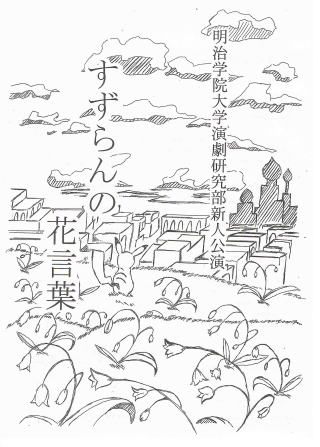 明治学院大学演劇研究部新人公演
すずらんの
花言葉